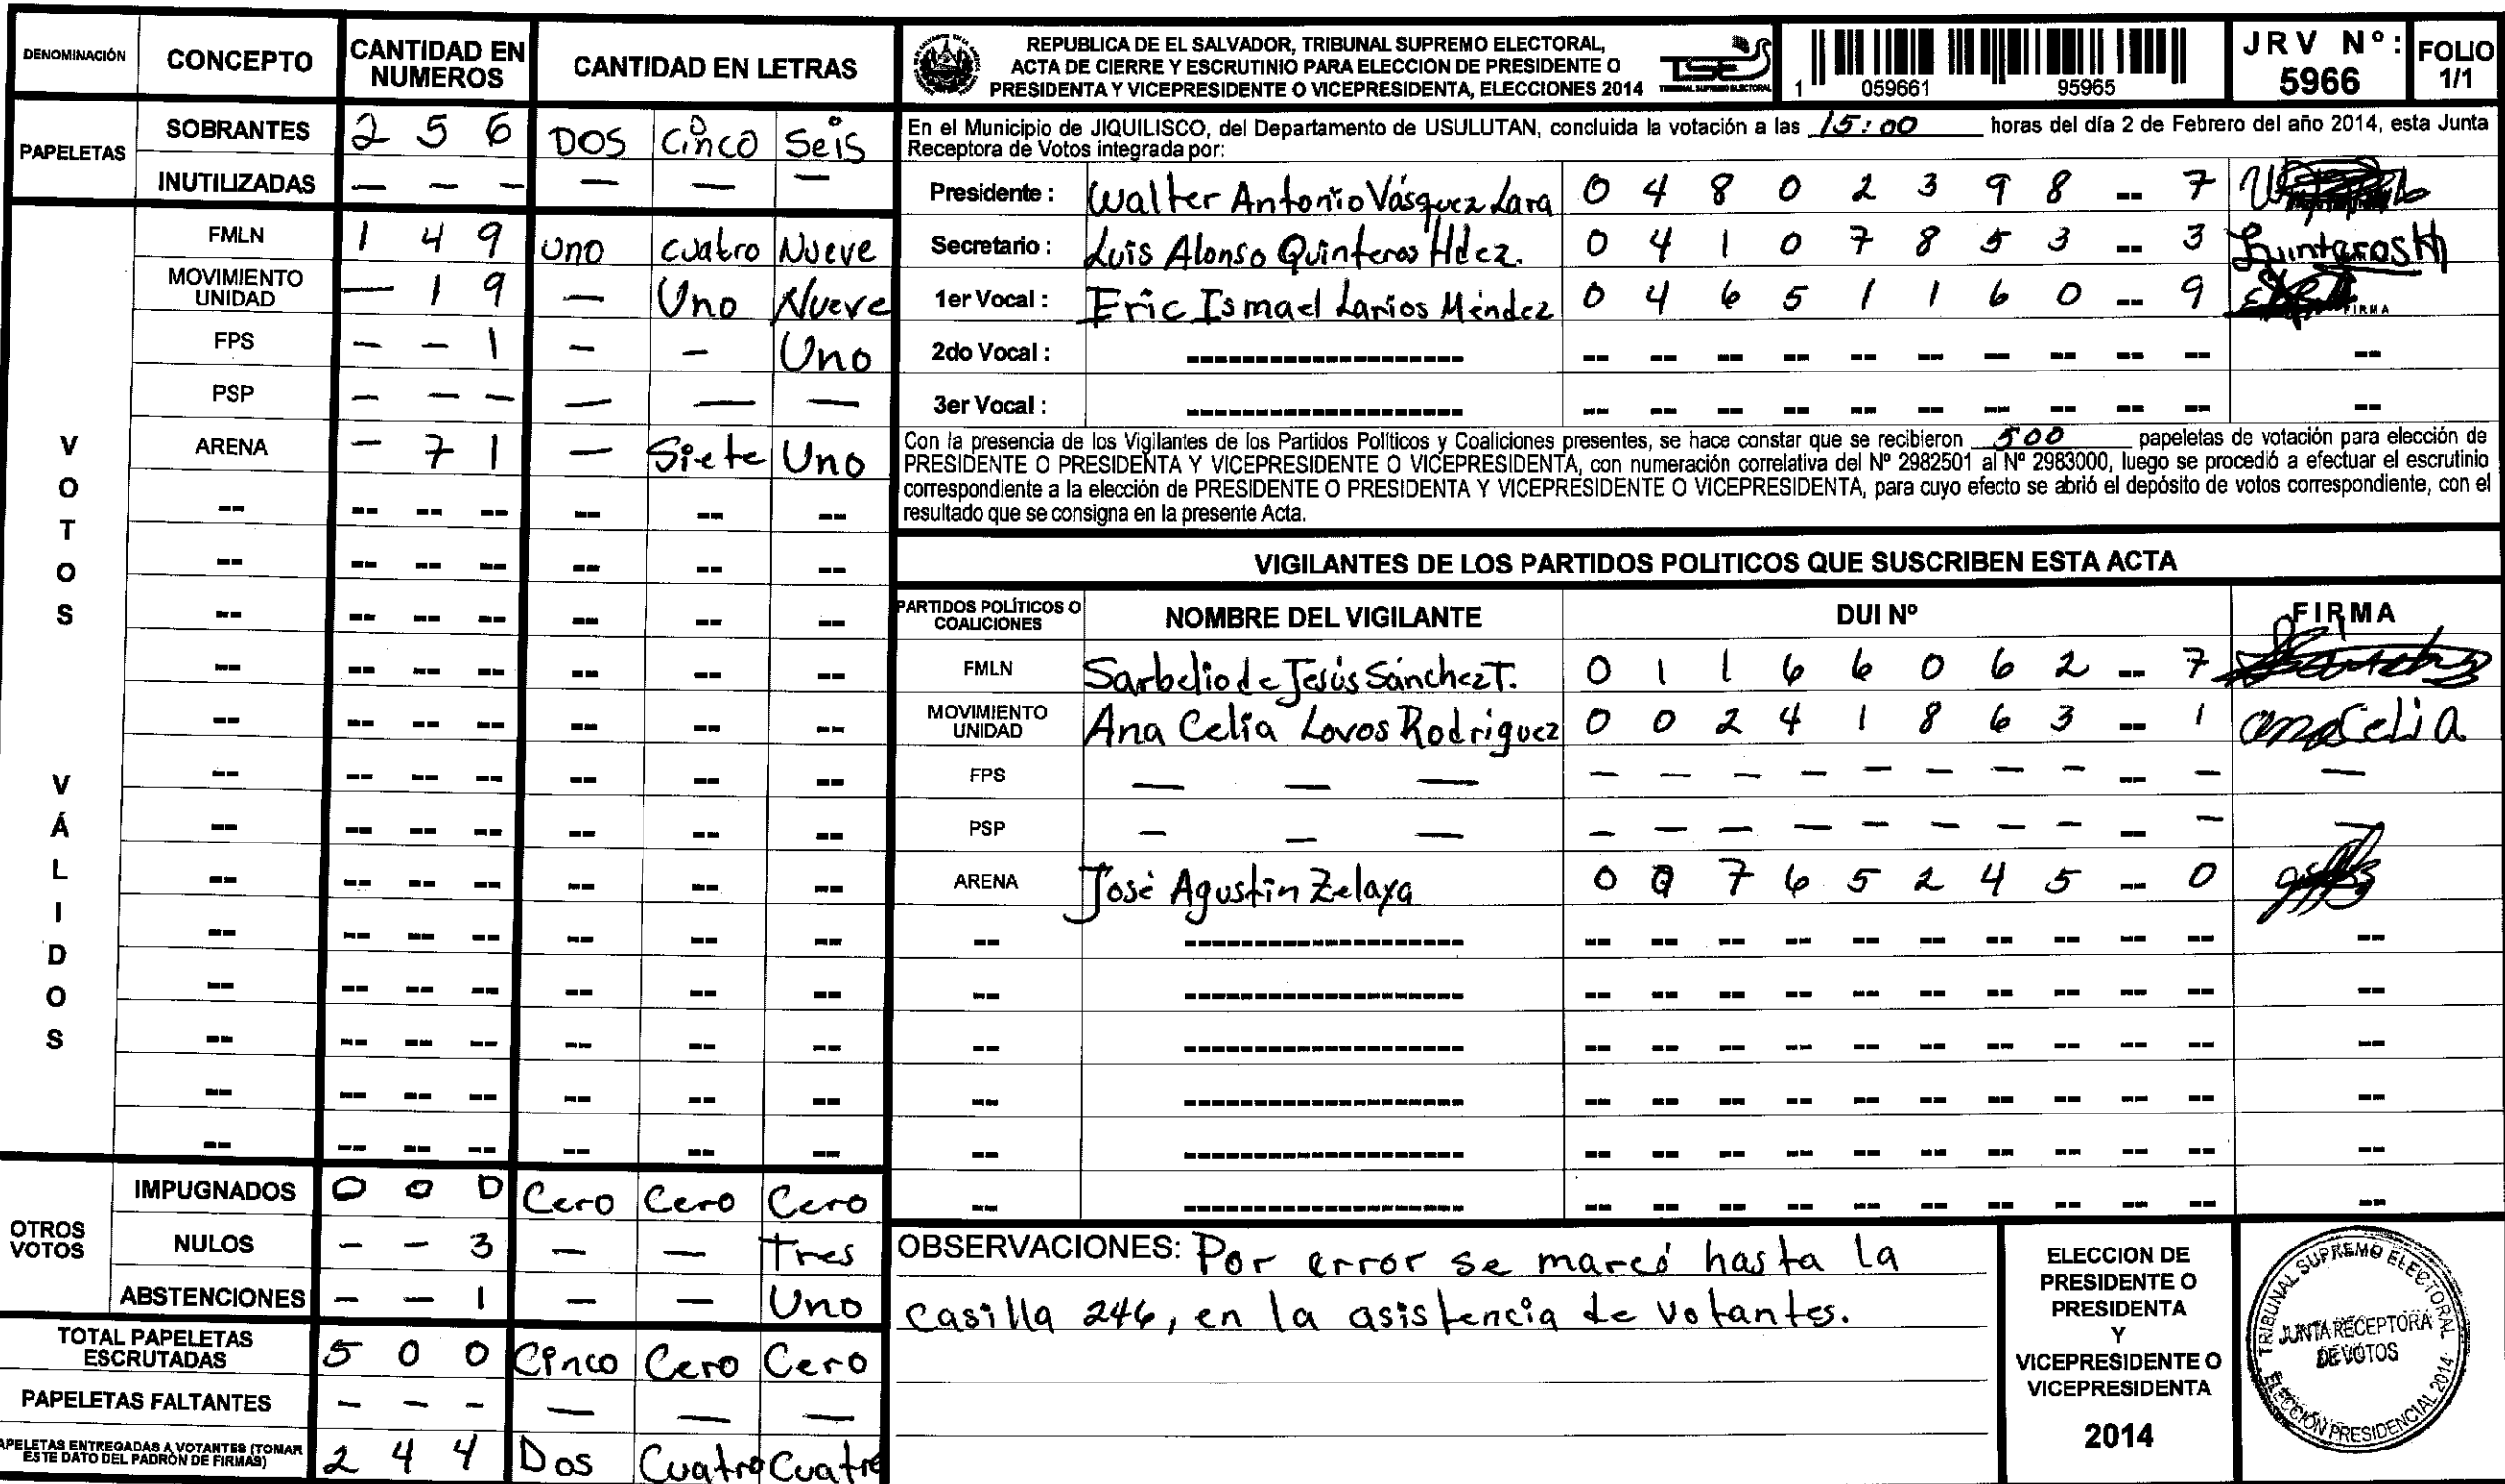 DENOMINACIÓN CONCEPTO CANTIDAD EN NUMEROS CANTIDAD EN LETRAS
PAPELETAS
SOBRANTES 2 5 6 DOS Cinco Seis
INUTILIZADAS — — — — — —
VOTOS VÁLIDOS
FMLN 1 4 9 uno cuatro Nueve
MOVIMIENTO UNIDAD — 1 9 — Uno Nueve
FPS — — 1 — — Uno
PSP — — — — — —
ARENA — 7 1 — Siete Uno
-- -- -- -- -- -- --
-- -- -- -- -- -- --
-- -- -- -- -- -- --
-- -- -- -- -- -- --
-- -- -- -- -- -- --
-- -- -- -- -- -- --
-- -- -- -- -- -- --
-- -- -- -- -- -- --
-- -- -- -- -- -- --
-- -- -- -- -- -- --
-- -- -- -- -- -- --
-- -- -- -- -- -- --
-- -- -- -- -- -- --
OTROS VOTOS
IMPUGNADOS 0 0 0 Cero Cero Cero
NULOS — — 3 — — Tres
ABSTENCIONES — — 1 — — Uno
TOTAL PAPELETAS ESCRUTADAS 5 0 0 Cinco Cero Cero
PAPELETAS FALTANTES — — — — — —
APELETAS ENTREGADAS A VOTANTES (TOMAR ESTE DATO DEL PADRÓN DE FIRMAS) 2 4 4 Dos Cuatro Cuatro
REPUBLICA DE EL SALVADOR, TRIBUNAL SUPREMO ELECTORAL,
ACTA DE CIERRE Y ESCRUTINIO PARA ELECCION DE PRESIDENTE O
PRESIDENTA Y VICEPRESIDENTE O VICEPRESIDENTA, ELECCIONES 2014
TSE
TRIBUNAL SUPREMO ELECTORAL
1 059661 95965
JRV Nº: 5966
FOLIO 1/1
En el Municipio de JIQUILISCO, del Departamento de USULUTAN, concluida la votación a las 15:00 horas del día 2 de Febrero del año 2014, esta Junta
Receptora de Votos integrada por:
Presidente : Walter Antonio Vásquez Lara 0 4 8 0 2 3 9 8 -- 7
Secretario : Luis Alonso Quinteros Hdez. 0 4 1 0 7 8 5 3 -- 3 Quinteros H
1er Vocal : Eric Ismael Larios Méndez 0 4 6 5 1 1 6 0 -- 9
FIRMA
2do Vocal : -------------------- -- -- -- -- -- -- -- -- -- -- --
3er Vocal : -------------------- -- -- -- -- -- -- -- -- -- -- --
Con la presencia de los Vigilantes de los Partidos Políticos y Coaliciones presentes, se hace constar que se recibieron 500 papeletas de votación para elección de
PRESIDENTE O PRESIDENTA Y VICEPRESIDENTE O VICEPRESIDENTA, con numeración correlativa del Nº 2982501 al Nº 2983000, luego se procedió a efectuar el escrutinio
correspondiente a la elección de PRESIDENTE O PRESIDENTA Y VICEPRESIDENTE O VICEPRESIDENTA, para cuyo efecto se abrió el depósito de votos correspondiente, con el
resultado que se consigna en la presente Acta.
VIGILANTES DE LOS PARTIDOS POLITICOS QUE SUSCRIBEN ESTA ACTA
PARTIDOS POLÍTICOS O COALICIONES NOMBRE DEL VIGILANTE DUI Nº FIRMA
FMLN Sarbelio de Jesús Sánchez T. 0 1 1 6 6 0 6 2 -- 7
MOVIMIENTO UNIDAD Ana Celia Lovos Rodriguez 0 0 2 4 1 8 6 3 -- 1 ana Celia
FPS — — — — — — — — — — — -- — —
PSP — — — — — — — — — — — -- — —
ARENA José Agustin Zelaya 0 0 7 6 5 2 4 5 -- 0
-- -------------------- -- -- -- -- -- -- -- -- -- -- --
-- -------------------- -- -- -- -- -- -- -- -- -- -- --
-- -------------------- -- -- -- -- -- -- -- -- -- -- --
-- -------------------- -- -- -- -- -- -- -- -- -- -- --
-- -------------------- -- -- -- -- -- -- -- -- -- -- --
-- -------------------- -- -- -- -- -- -- -- -- -- -- --
OBSERVACIONES: Por error se marcó hasta la
Casilla 246, en la asistencia de votantes.
ELECCION DE
PRESIDENTE O
PRESIDENTA
Y
VICEPRESIDENTE O
VICEPRESIDENTA
2014
TRIBUNAL SUPREMO ELECTORAL
JUNTA RECEPTORA
DE VOTOS
ELECCIÓN PRESIDENCIAL 2014